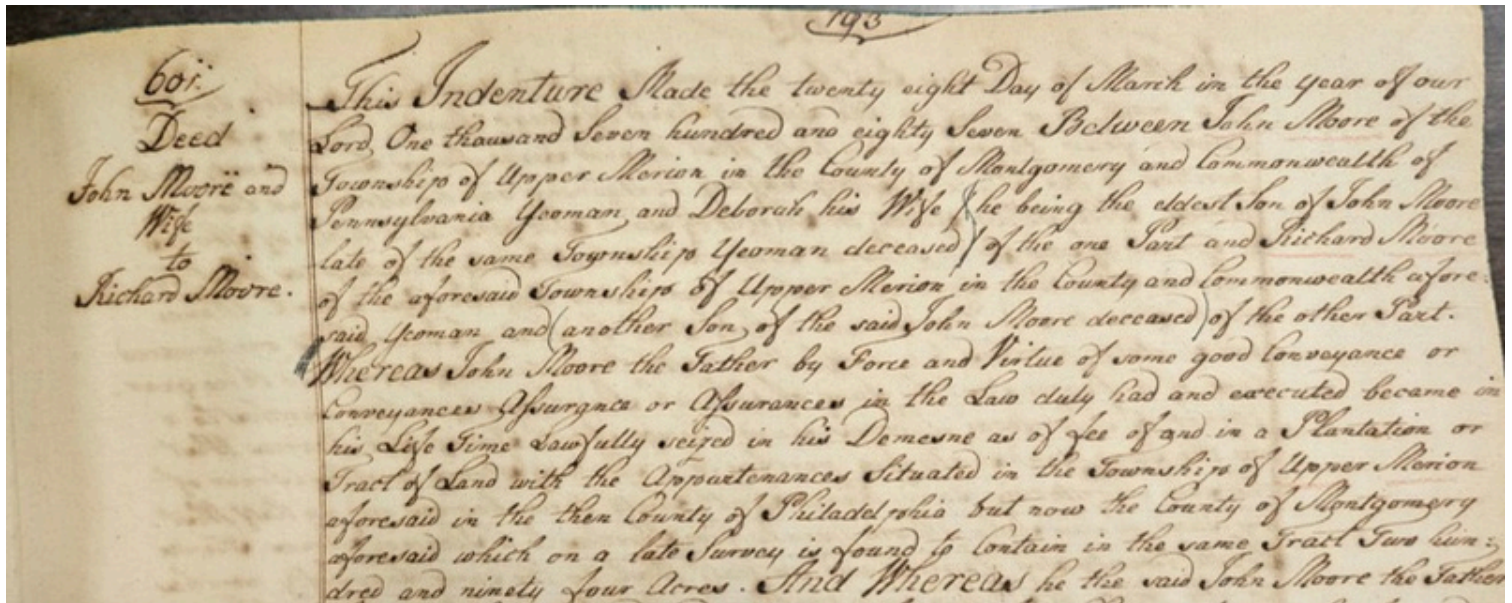 193
601.
Deed
John Moore and
Wife
to
Richard Moore.
This Indenture Made the twenty eight Day of March in the year of our
Lord One thousand Seven hundred and eighty Seven Between John Moore of the
Township of Upper Merion in the County of Montgomery and Commonwealth of
Pennsylvania Yeoman and Deborah his Wife (he being the eldest Son of John Moore
late of the same Township Yeoman deceased) of the one Part and Richard Moore
of the aforesaid Township of Upper Merion in the County and Commonwealth afore-
said Yeoman and (another Son of the said John Moore deceased) of the other Part.
Whereas John Moore the Father by Force and Virtue of some good Conveyance or
Conveyances Assurance or Assurances in the Law duly had and executed became in
his Life Time Lawfully seized in his Demesne as of fee of and in a Plantation or
Tract of Land with the Appurtenances Situated in the Township of Upper Merion
aforesaid in the then County of Philadelphia but now the County of Montgomery
aforesaid which on a late Survey is found to Contain in the same Tract Two hun-
dred and ninety four Acres. And Whereas he the said John Moore the Father